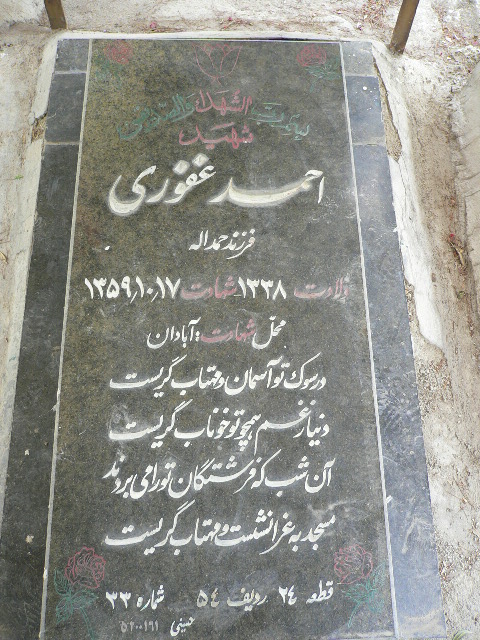 بسم رب الشهداء والصدیقین
شهید
احمد غفوری
فرزند حمداله
ولادت ۱۳۳۸ شهادت ۱۳۵۹٫۱۰٫۱۷
محل شهادت: آبادان
در سوک تو آسمان و مهتاب گریست
دنیا زغم همچو تو خوناب گریست
آن شب که فرشتگان تو را می بردند
مسجد به عزا نشست و مهتاب گریست
قطعه ۲۴ ردیف ۵۴ شماره ۳۳
حسینی